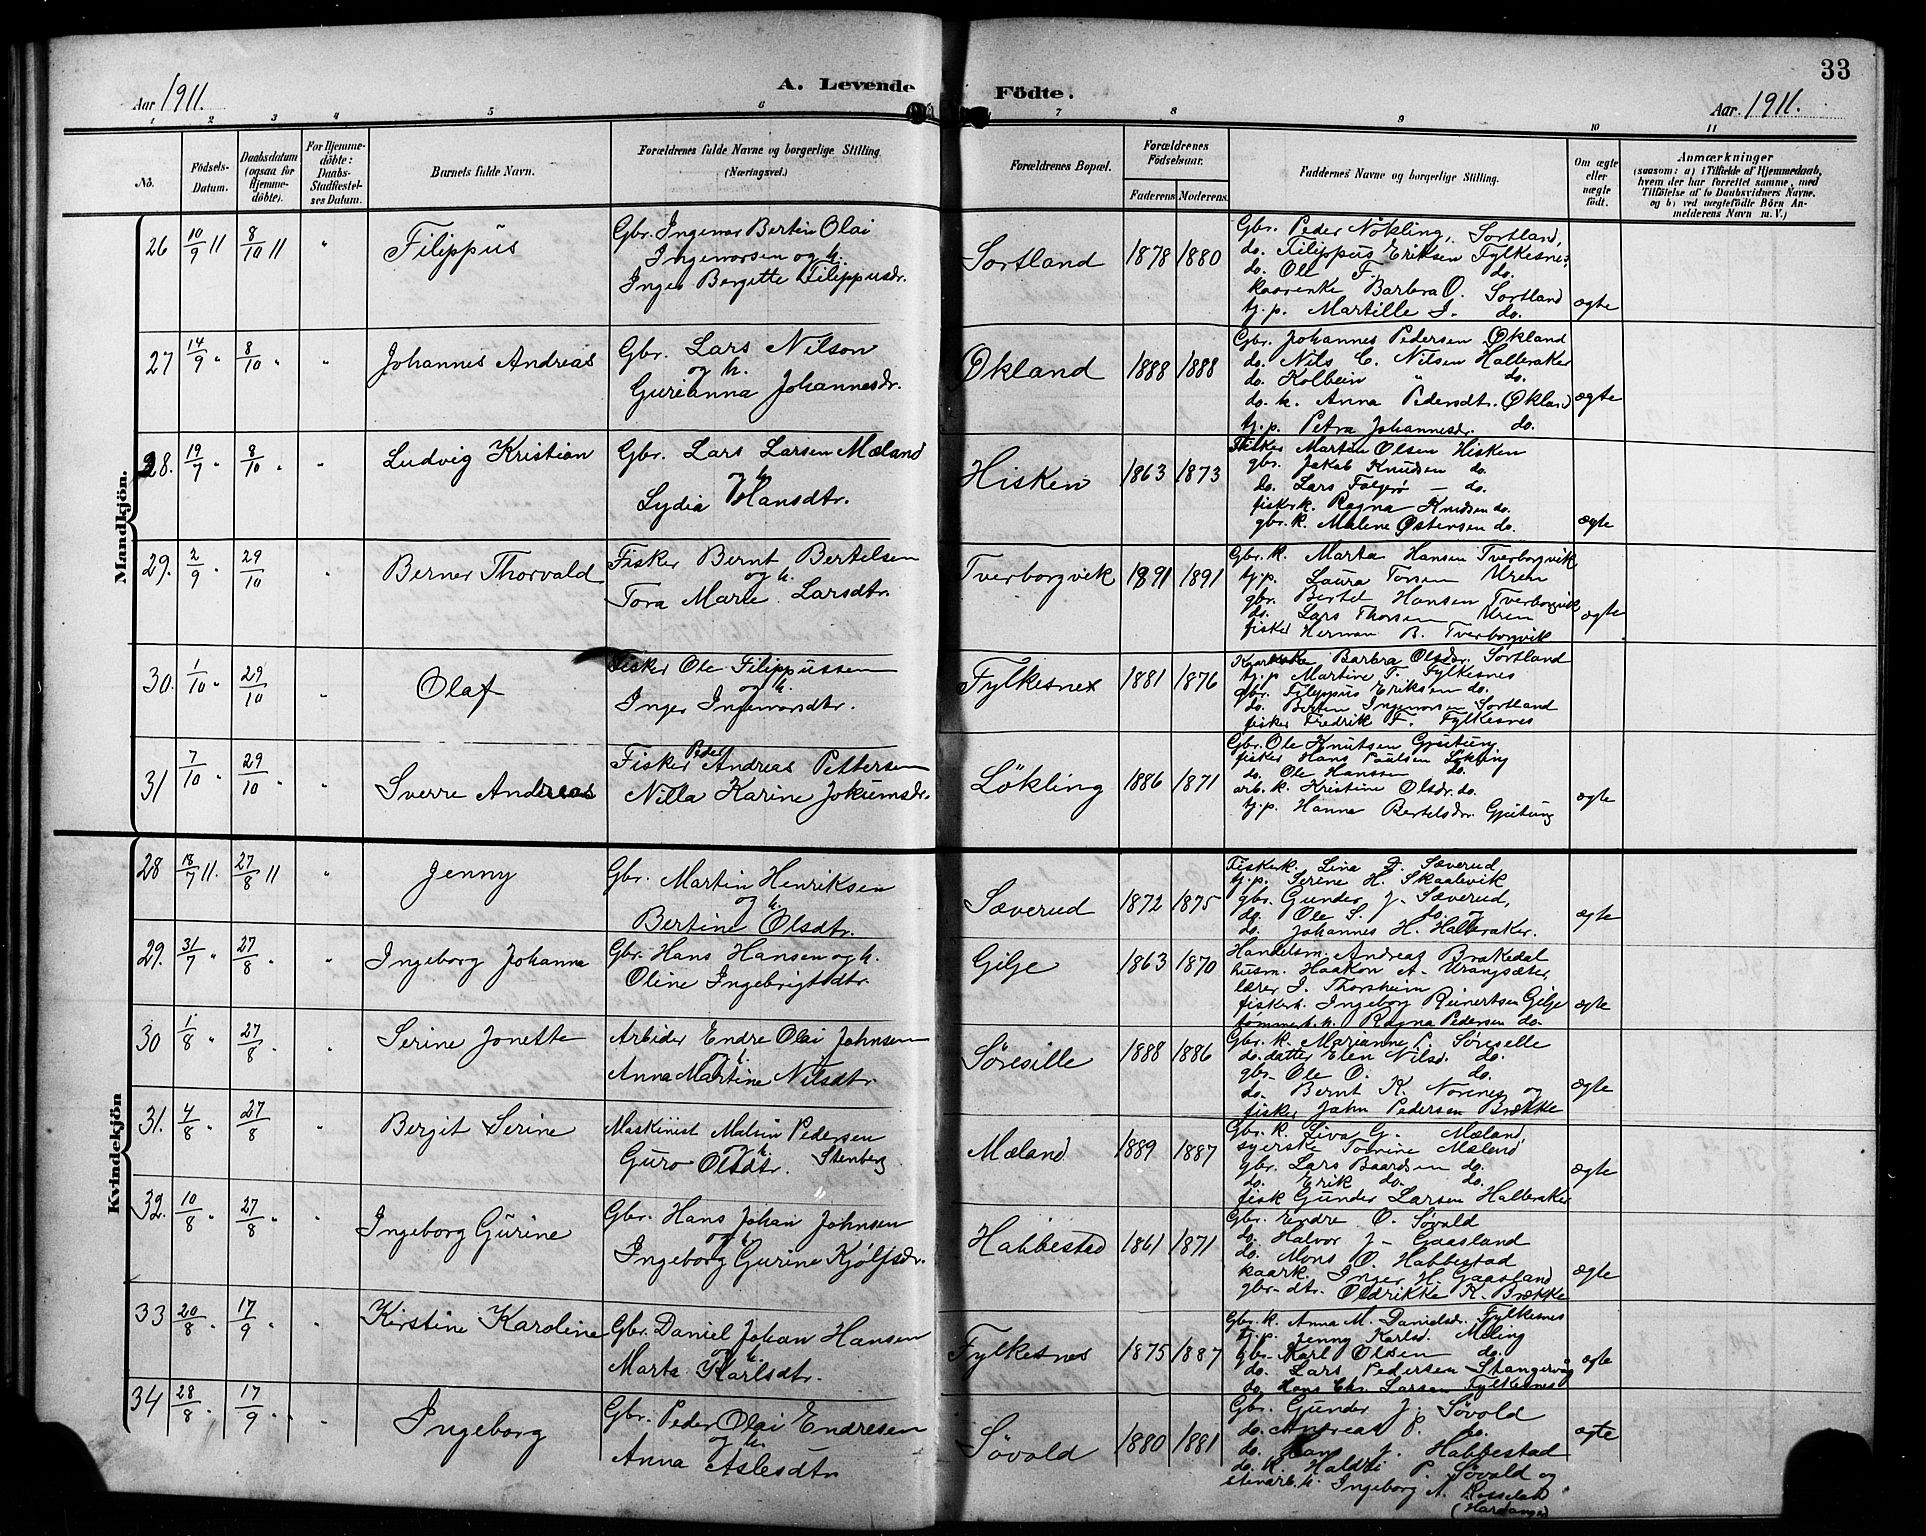 33
Aar 1911.
A. Levende Födte.
Aar. 1911.
1 2 3 4 5 6 7 8 9 10 11
No.
Födsels-Datum.
Daabsdatum (ogsaa for Hjemme-döbte).
For Hjemme-döbte: Daabs-Stadfæstel-ses Datum.
Barnets fulde Navn.
Forældrenes fulde Navne og borgerlige Stilling (Næringsvei.)
Forældrenes Bopæl.
Forældrenes Födselsaar.
Faderens Moderens
Faddernes' Navne og borgerlige Stilling.
Om ægte eller uægte födt.
Anmærkninger
(saasom: a) i Tilfælde af Hjemmedaab, hvem der har forrettet samme, med Tilföielse af to Daabsvidners Navne, og b) ved uægtefödte Börn An-melderens Navn m. V.)
Mandkjön.
26 10/9 11 8/10 11 " Filippus
Gbr. Ingemar Bertin Olai
Ingemarsen og h.
Inger Bergitte Filippusdr.
Sortland 1878 1880
Gbr. Peder Nökling, Sortland,
do. Filippus Eriksen Fylkesnes
do. Ole F. do.
kaarenke Barbra O. Sortland
tj.p. Martille I. do.
ægte
27 14/9 " 8/10 " " Johannes Andreas
Gbr. Lars Nilson
og h.
Gurianna Johannesdr.
Økland 1888 1888
Gbr. Johannes Pedersen Økland
do. Nils C. Nilsen Halleraker
do. Kolbein " do.
do. k. Anna Pedersdtr. Økland
tj.p. Petra Johannesdr. do.
ægte
28. 19/7 " 8/10 " " Ludvig Kristian
Gbr. Lars Larsen Mæland
og h.
Lydia Hansdtr.
Hisken 1863 1873
Fisker Martin Olsen Hisken
gbr. Jakob Knudsen do.
do. Lars Folgerø - do.
fiskerk. Ragna Knudsen do.
gbr. k. Malene Østensen do.
ægte
29. 2/9 " 29/10 " Berner Thorvald
Fisker Bernt Bertelsen
og h.
Tora Marie Larsdtr.
Tverborgvik 1891 1891
Gbr. k. Marta Hansen Tverborgvik
tj.p. Laura Torsen Uren
gbr. Bertel Hansen Tverborgvik
do. Lars Thorsen Uren
fisker Herman B. Tverborgvik
ægte
30. 1/10 " 29/10 " Olaf
Fisker Ole Filippussen
og h.
Inger Ingemarsdtr.
Fylkesnes 1881 1876
Kaarenke Barbra Olsdr. Sortland
tj.p Martine F. Fylkesnes
gbr. Filippus Eriksen do.
do. Bertin Ingemarsen Sortland
fisker Fredrik F. Fylkesnes
31 7/10 " 29/10 " " Sverre Andreas
Peder
Fisker Andreas Pettersen
Nilla Karine Jokumsdr.
Løkling 1886 1871
Gbr. Ole Knutsen Gjeitung
fisker Hans Paulsen Løkling
do. Ole Hanssen do.
arb. k. Kristine Olsdr. do.
tj.p. Hanna Bertelsdr. Gjeitung
ægte
Kvindekjön
28 18/7 11. 27/8 11 " Jenny
Gbr. Martin Henriksen
og h.
Bertine Olsdtr.
Sæverud 1872 1875
Fiskerk. Lina J. Sæverud
tj.p. Serine H. Skaalevik
gbr. Gunder J. Sæverud,
do. Ole S. do. og
do. Johannes H. Halleraker.
ægte
29. 31/7 " 27/8 " " Ingeborg Johanna
Gbr. Hans Hansen og h.
Oline Ingebrigtsdtr.
Gilje 1863 1870
Handelsm. Andreas Brakedal
husm. Haakon A. Urangsæter,
lærer J. Thorsheim
fiskerk. Ingeborg Reinertsen Gilje
tømmerh.k. Ragna Pedersen do.
ægte
30 1/8 " 27/8 " " Serine Jonette
Arbeider Endre Olai Johnsen
og h.
Anna Martine Nilsdtr.
Søresille 1888 1886
Gbr. k. Marianne P. Søreselle
do. datter Elen Nilsd. do.
gbr. Ole O. do.
do. Bernt K. Norenes og
fisker John Pedersen Brække
ægte
31. 4/8 " 27/8 " Bergit Serine
Maskinist Malvin Pedersen
og h. Stenberg
Guro Olsdtr.
Mæland 1889 1887
Gbr. k. Siva G. Mæland,
syerske Tomine Mæland
Gbr. Lars Baardsen do.
do. Erik do. do.
fisk Gunder Larsen Halleraker
ægte
32. 10/8 " 27/8 " " Ingeborg Gurine
Gbr. Hans Johan Johnsen
og h.
Ingeborg Gurine Kjølfsdr.
Habbestad 1861 1871
Gbr. Endre O. Søvold
do. Halvor J. Gaasland
do. Mons O. Habbestad
kaark. Inger H. Gaasland
gbr. dtr. Oldrikke K. Brække
ægte
33 20/8 " 17/9 " " Kirstine Karoline
Gbr. Daniel Johan Hansen
og h.
Marta Karlsdtr.
Fylkesnes 1875 1887
Gbr. k. Anna M. Danielsdr. Fylkesnes
tj.p. Jenny Karlsd. Møling
gbr. Karl Olsen do.
do. Lars Pedersen Stangervåg
do. Hans Chr. Larsen Fylkesnes
ægte
34 28/8 " 17/9 " " Ingeborg
Gbr. Peder Olai Endresen
og h.
Anna Aslesdtr
Søvold 1880 1881
Gbr. Gunder J. Søvold
do. Andreas P. do.
do. Hans J. Habbestad
do. k. Haldri P. Søvold og
stenarb. k. Ingeborg A.
(Hardanger)
ægte